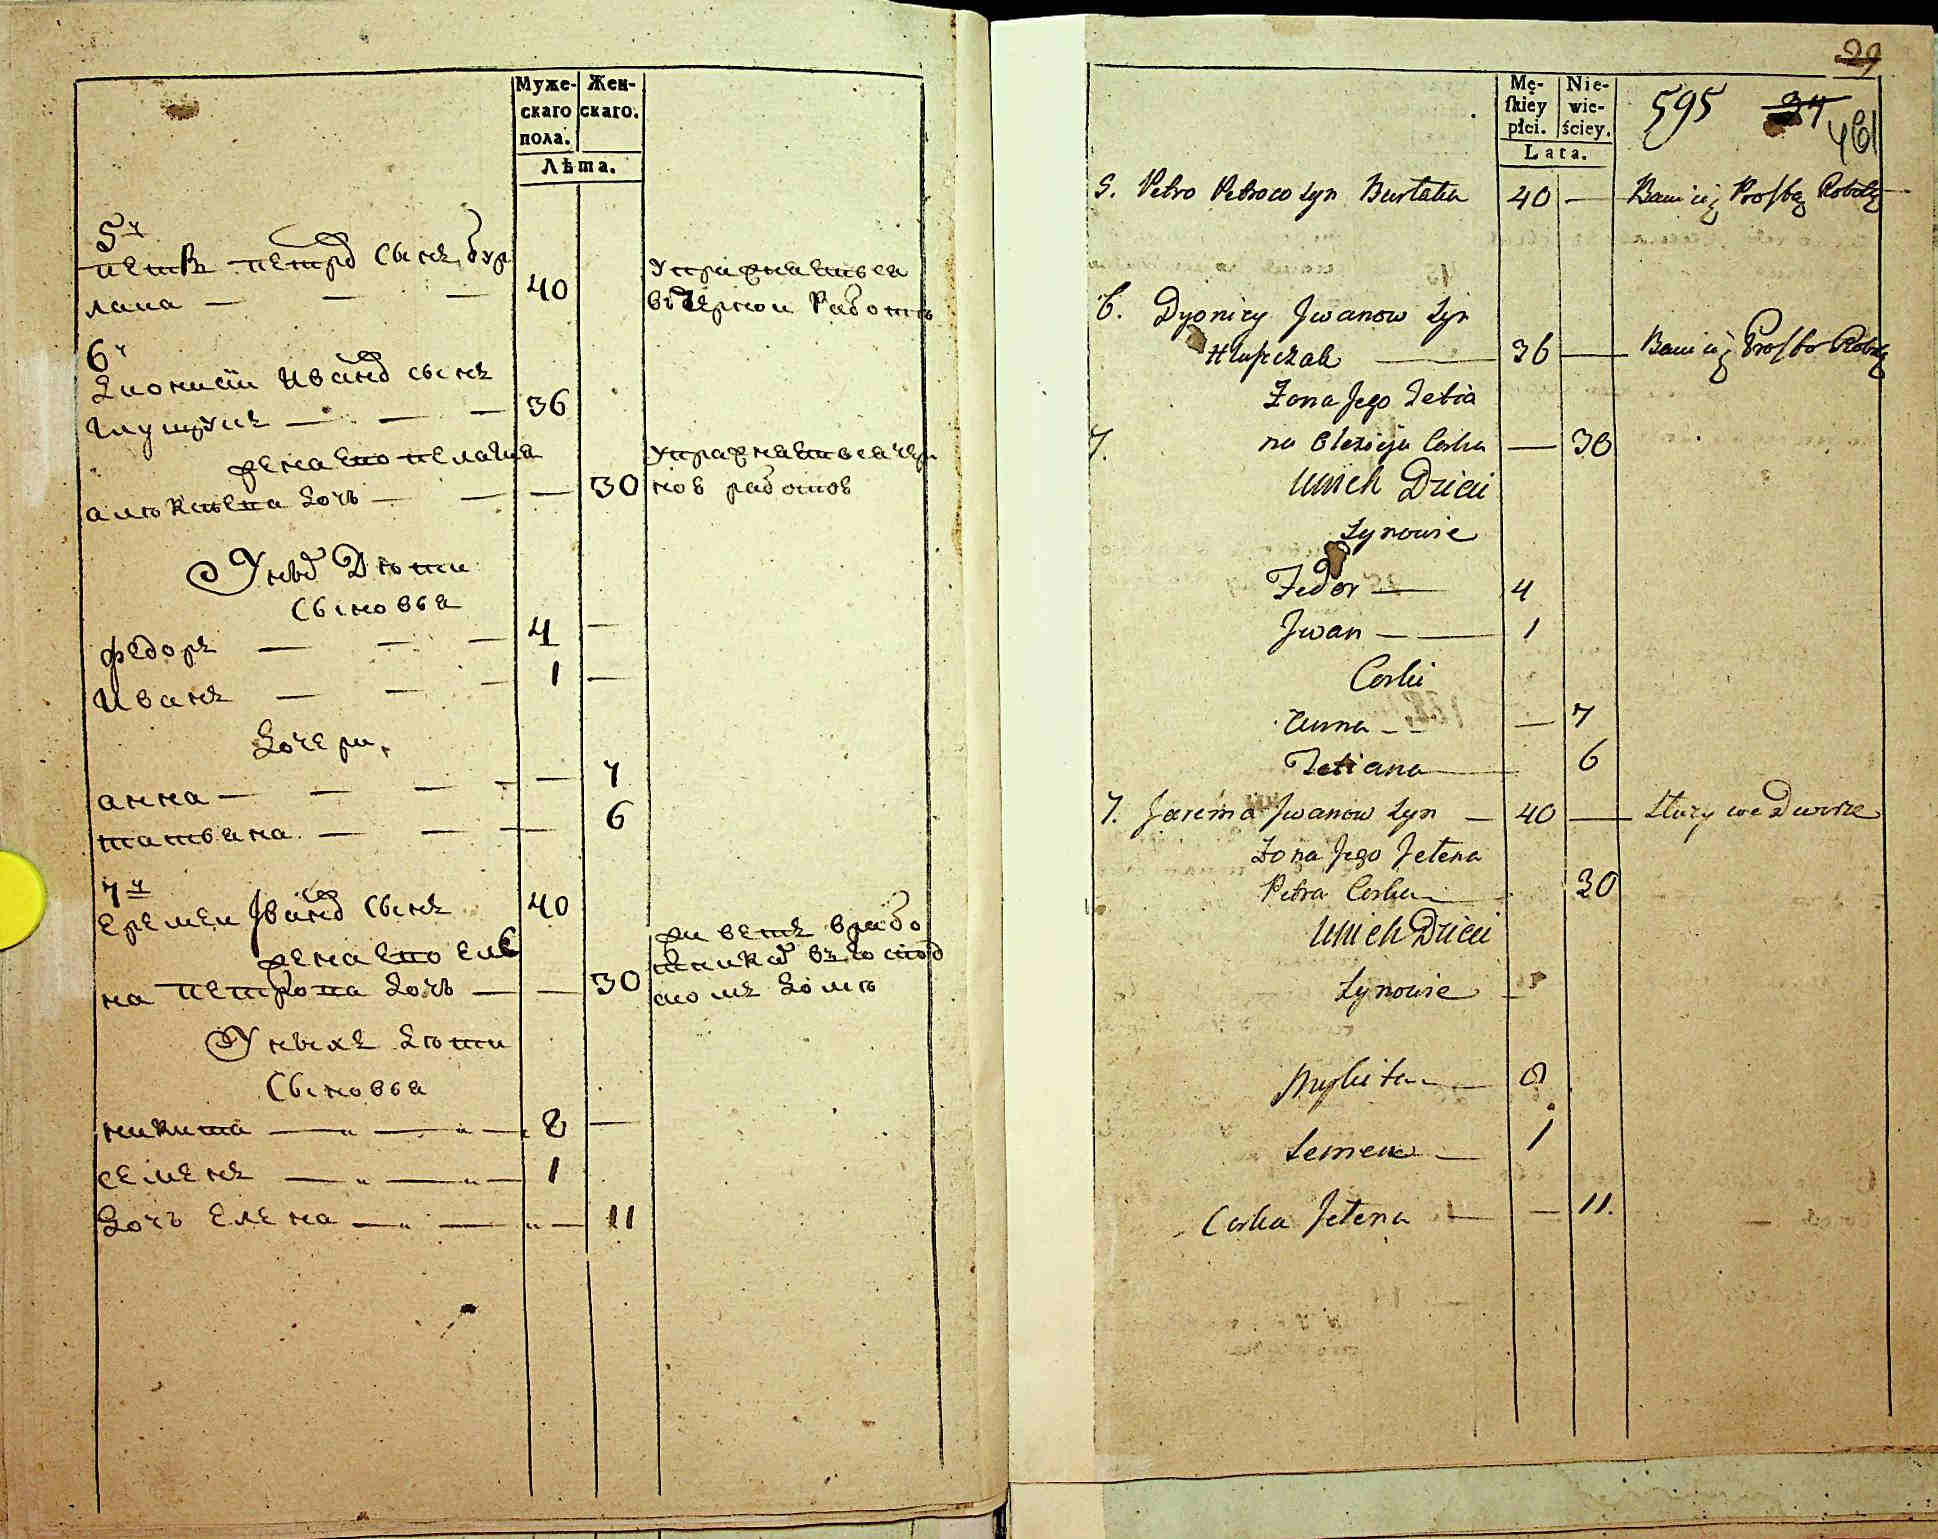 Муже-
скаго
пола.
Жен-
скаго.
Лѣта.
5й
петръ петровъ сынъ бур
лака — — — 40
Упражняется
въ черной работѣ
6й
Дионисiй Ивановъ сынъ
— — — 36
жена его пелагия
алексѣева дочь — — — 30
Упражняется чер
ной работой
У нихъ Дѣти
Сыновья
федоръ — — — 4 —
Иванъ — — — 1 —
Дочери
анна — — — — — 7
татьяна — — — 6
7й
еремей Ивановъ сынъ 40
жена его еле
на петрова дочь — — 30
живетъ в
въ господ
скомъ домѣ
У нихъ дѣти
Сыновья
никита — — — 8 —
семенъ — — — 1
Дочь елена — — — 11
29
Mę-
ſkiey
płci.
Nie-
wie-
ściey.
Lata.
595 34
461
5. Petro Petrow Syn Burlaka 40 — Bawi się Prostą Robotą
6. Dyonizy Jwanow Syn
Hlupczak — 36 — Bawi się Prosto Robotą
Żona Jego Pelia
7. na Olexieja Corka — 30
U nich Dzieci
Synowie
Fedor — 4
Jwan — — 1
Corki
Anna — — — 7
Tetiana — 6
7. Jarema Jwanow Syn — 40 — Służy we Dworze
Żona Jego Jelena
Petra Corka — 30
U nich Dzieci
Synowie —
Mykita — 8
Semen — 1
Corka Jelena — — 11.